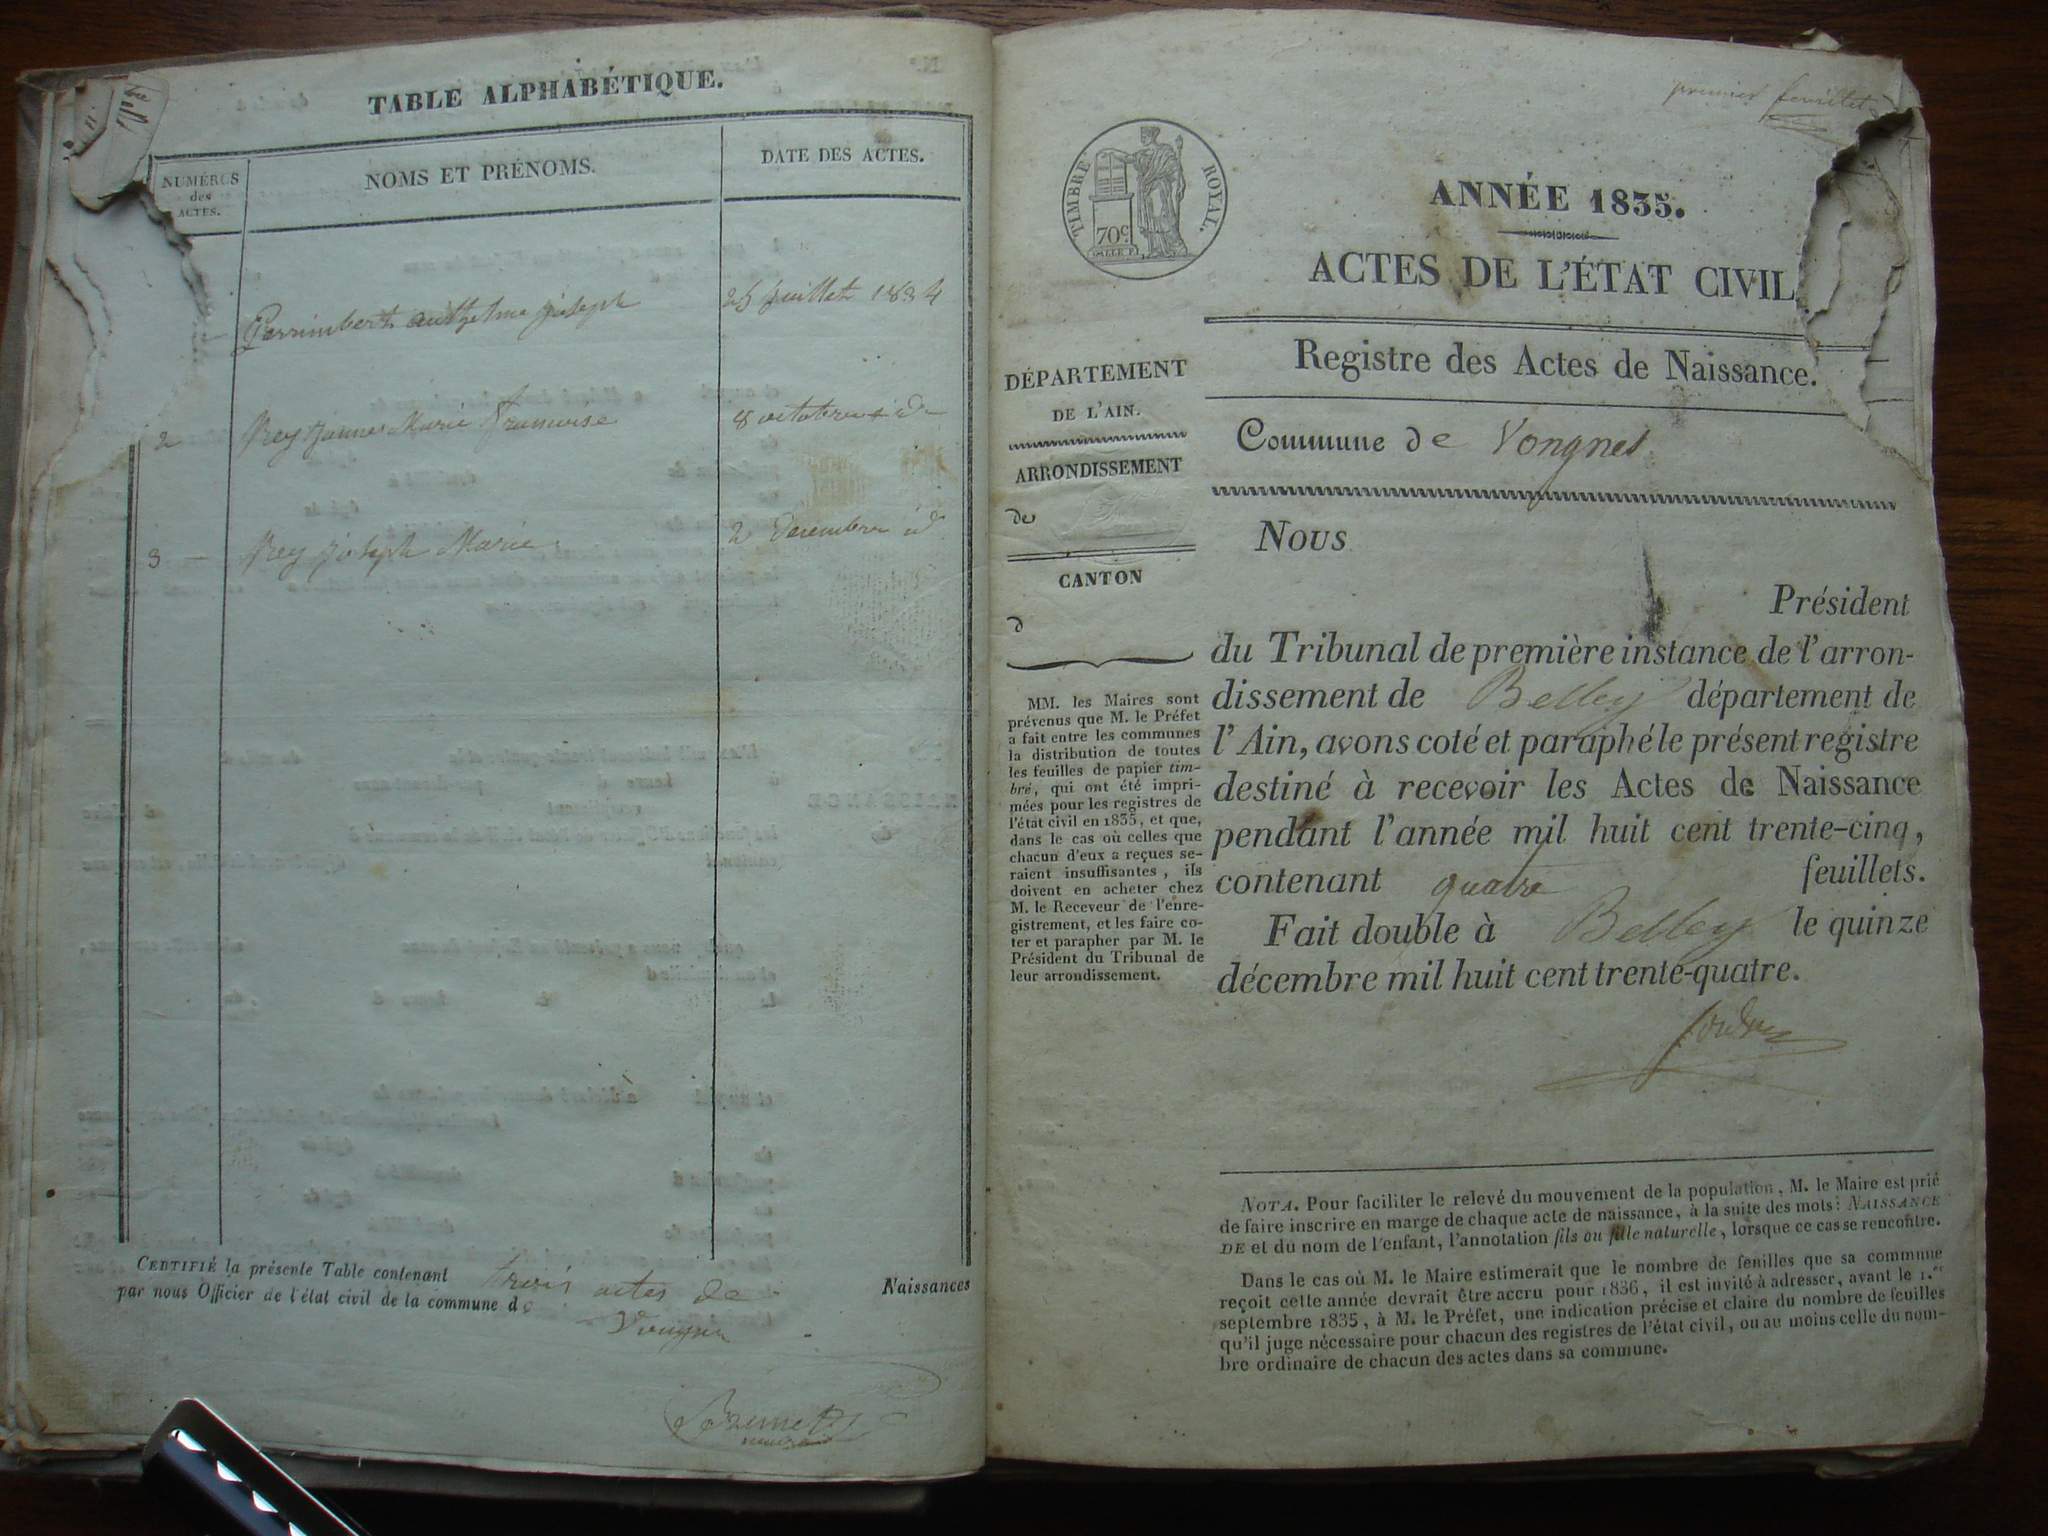 TABLE ALPHABÉTIQUE.
NUMÉROS
des
ACTES.
NOMS ET PRÉNOMS.
DATE DES ACTES.
Perrimbert anthelme joseph 25 juillet 1834
2 Rey jeanne Marie françoise 8 octobre id
3 Rey joseph Marie 2 Decembre id
CERTIFIÉ la présente Table contenant trois actes de Naissances
par nous Officier de l'état civil de la commune de Vongnes
premier feuillet
TIMBRE ROYAL.
70c
ANNÉE 1835.
ACTES DE L'ÉTAT CIVIL.
Registre des Actes de Naissance.
Commune de Vongnes
DÉPARTEMENT
DE L'AIN.
ARRONDISSEMENT
de
CANTON
d
MM. les Maires sont
prévenus que M. le Préfet
a fait entre les communes
la distribution de toutes
les feuilles de papier tim-
bré, qui ont été impri-
mées pour les registres de
l'état civil en 1835, et que,
dans le cas où celles que
chacun d'eux a reçues se-
raient insuffisantes, ils
doivent en acheter chez
M. le Receveur de l'enre-
gistrement, et les faire co-
ter et parapher par M. le
Président du Tribunal de
leur arrondissement.
Nous
Président
du Tribunal de première instance de l'arron-
dissement de Belley département de
l'Ain, avons coté et paraphé le présent registre
destiné à recevoir les Actes de Naissance
pendant l'année mil huit cent trente-cinq,
contenant quatre feuillets.
Fait double à Belley le quinze
décembre mil huit cent trente-quatre.
NOTA. Pour faciliter le relevé du mouvement de la population, M. le Maire est prié
de faire inscrire en marge de chaque acte de naissance, à la suite des mots: NAISSANCE
DE et du nom de l'enfant, l'annotation fils ou fille naturelle, lorsque ce cas se rencontre.
Dans le cas où M. le Maire estimerait que le nombre de feuilles que sa commune
reçoit cette année devrait être accru pour 1836, il est invité à adresser, avant le 1.er
septembre 1835, à M. le Préfet, une indication précise et claire du nombre de feuilles
qu'il juge nécessaire pour chacun des registres de l'état civil, ou au moins celle du nom-
bre ordinaire de chacun des actes dans sa commune.